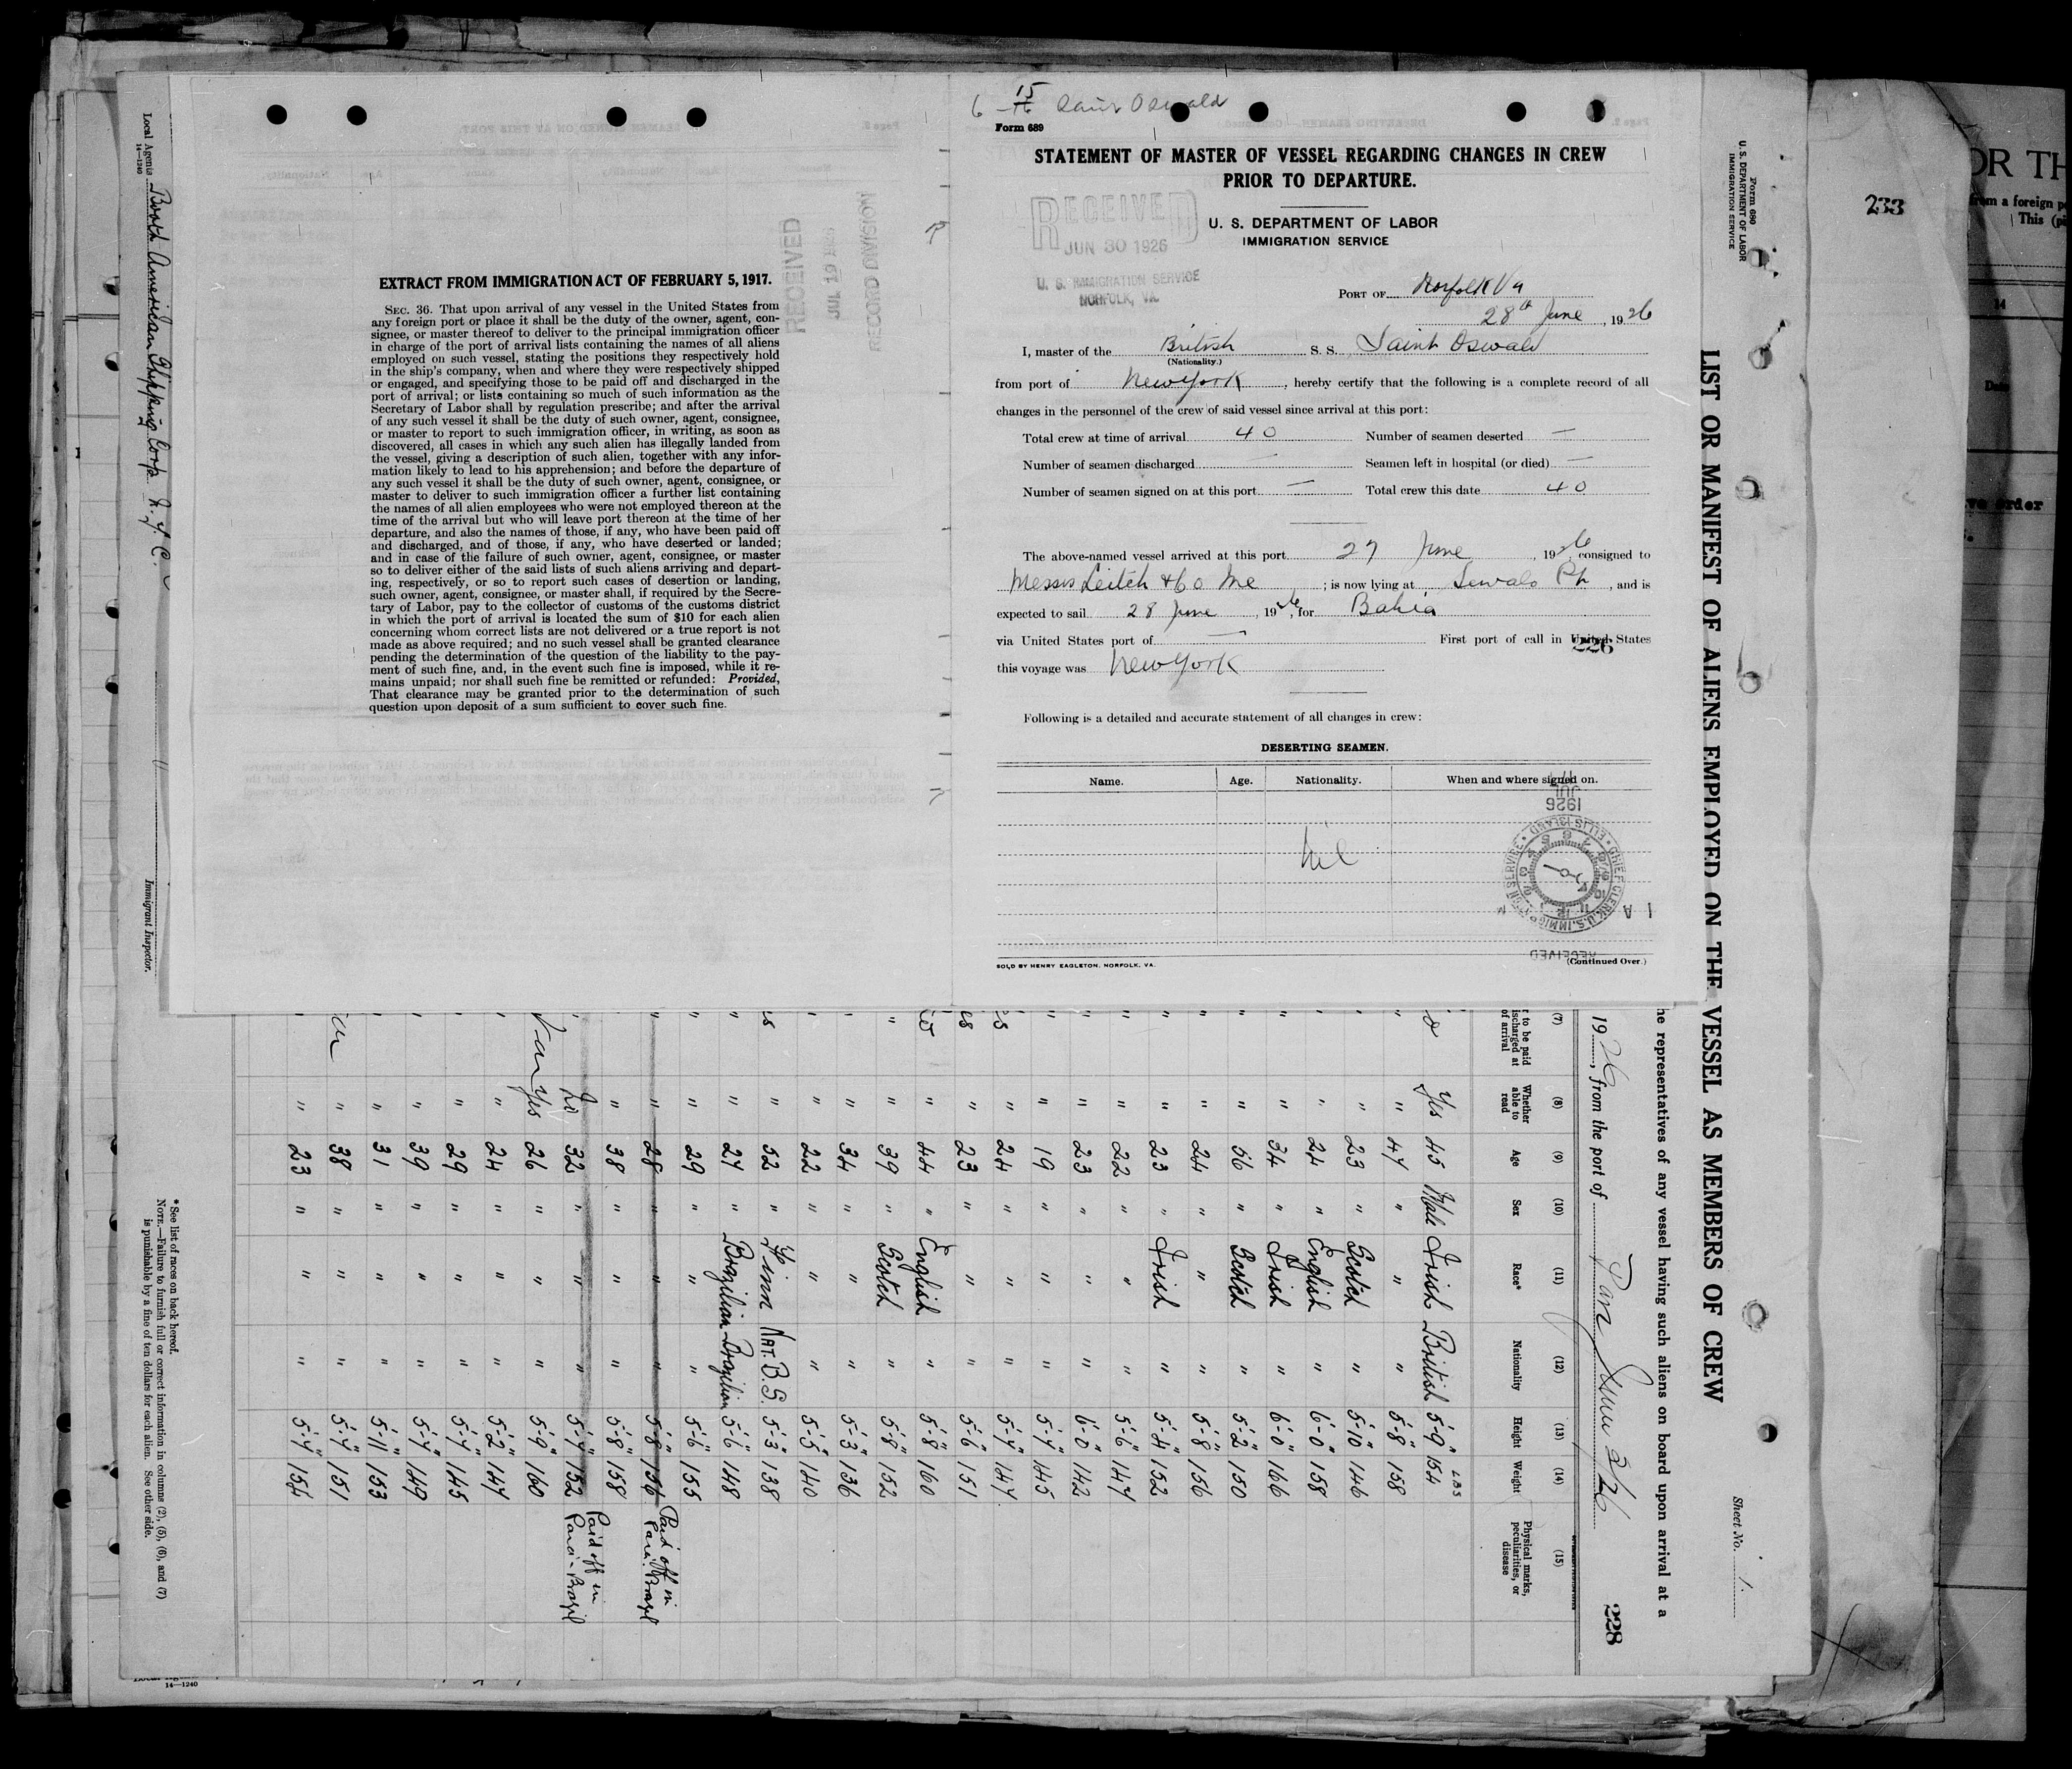 Saint Oswald
Form 689
STATEMENT OF MASTER OF VESSEL REGARDING CHANGES IN CREW
PRIOR TO DEPARTURE.
U. S. DEPARTMENT OF LABOR
IMMIGRATION SERVICE
RECEIVED
JUN 30 1926
U. S. IMMIGRATION SERVICE
NORFOLK, VA.
PORT OF Norfolk Va
28th June, 1926
I, master of the British S. S. Saint Oswald
(Nationality.)
from port of New York, hereby certify that the following is a complete record of all
changes in the personnel of the crew of said vessel since arrival at this port:
Total crew at time of arrival 40 Number of seamen deserted —
Number of seamen discharged — Seamen left in hospital (or died) —
Number of seamen signed on at this port — Total crew this date 40
The above-named vessel arrived at this port 27 June, 1926, consigned to
Messrs Leitch & Co ; is now lying at Sewalls Pt, and is
expected to sail 28 June, 1926, for Bahia
via United States port of — First port of call in United States
226
this voyage was New York
Following is a detailed and accurate statement of all changes in crew:
DESERTING SEAMEN.
Name. Age. Nationality. When and where signed on.
nil
JUL
1926
CHIEF CLERK, U.S. IMMIGRATION SERVICE
ELLIS ISLAND
RECEIVED
SOLD BY HENRY EAGLETON, NORFOLK, VA.
(Continued Over.)
EXTRACT FROM IMMIGRATION ACT OF FEBRUARY 5, 1917.
SEC. 36. That upon arrival of any vessel in the United States from
any foreign port or place it shall be the duty of the owner, agent, con-
signee, or master thereof to deliver to the principal immigration officer
in charge of the port of arrival lists containing the names of all aliens
employed on such vessel, stating the positions they respectively hold
in the ship's company, when and where they were respectively shipped
or engaged, and specifying those to be paid off and discharged in the
port of arrival; or lists containing so much of such information as the
Secretary of Labor shall by regulation prescribe; and after the arrival
of any such vessel it shall be the duty of such owner, agent, consignee,
or master to report to such immigration officer, in writing, as soon as
discovered, all cases in which any such alien has illegally landed from
the vessel, giving a description of such alien, together with any infor-
mation likely to lead to his apprehension; and before the departure of
any such vessel it shall be the duty of such owner, agent, consignee, or
master to deliver to such immigration officer a further list containing
the names of all alien employees who were not employed thereon at the
time of the arrival but who will leave port thereon at the time of her
departure, and also the names of those, if any, who have been paid off
and discharged, and of those, if any, who have deserted or landed;
and in case of the failure of such owner, agent, consignee, or master
so to deliver either of the said lists of such aliens arriving and depart-
ing, respectively, or so to report such cases of desertion or landing,
such owner, agent, consignee, or master shall, if required by the Secre-
tary of Labor, pay to the collector of customs of the customs district
in which the port of arrival is located the sum of $10 for each alien
concerning whom correct lists are not delivered or a true report is not
made as above required; and no such vessel shall be granted clearance
pending the determination of the question of the liability to the pay-
ment of such fine, and, in the event such fine is imposed, while it re-
mains unpaid; nor shall such fine be remitted or refunded: Provided,
That clearance may be granted prior to the determination of such
question upon deposit of a sum sufficient to cover such fine.
RECEIVED
RECORD DIVISION
Form 680
U. S. DEPARTMENT OF LABOR
IMMIGRATION SERVICE
Sheet No. 1.
LIST OR MANIFEST OF ALIENS EMPLOYED ON THE VESSEL AS MEMBERS OF CREW
he representatives of any vessel having such aliens on board upon arrival at a
1926, from the port of Para June 3/26
228
(7) (8) (9) (10) (11) (12) (13) (14) (15)
r to be paid
ischarged at
of arrival
Whether
able to
read
Age Sex Race* Nationality Height Weight
Physical marks,
peculiarities, or
disease
LBS
Yes 45 Male Irish British 5-9" 154
" 47 " " " 5-8" 158
" 23 " Scotch " 5-10" 146
" 24 " English " 6-0" 158
" 34 " Irish " 6-0" 166
" 56 " Scotch " 5-2" 150
" 24 " " " 5-8" 156
" 23 " Irish " 5-4" 152
" 22 " " " 5-6" 147
" 23 " " " 6-0" 142
" 19 " " " 5-7" 145
" 24 " " " 5-7" 147
" 23 " " " 5-6" 151
" 44 " English " 5-8" 160
" 39 " Scotch " 5-8" 152
" 34 " " " 5-3" 136
" 22 " " " 5-5" 140
" 52 " Finn NAT. B.S. 5-3" 138
" 27 " Brazilian Brazilian 5-6" 148
" 29 " " " 5-6" 155
" 28 " " " 5-8" 156 Paid off in Para. Brazil
" 38 " " " 5-8" 158
no 32 " " " 5-7" 152 Paid off in Para. Brazil
Yes 26 " " " 5-9" 160
" 24 " " " 5-2" 147
" 29 " " " 5-7" 145
" 39 " " " 5-7" 149
" 31 " " " 5-11" 153
" 38 " " " 5-7" 151
" 23 " " " 5-7" 154
*See list of races on back hereof.
NOTE.—Failure to furnish full or correct information in columns (2), (5), (6), and (7)
is punishable by a fine of ten dollars for each alien. See other side.
Local Agents Booth American Shipping Corp. N. Y. C.
14—1240
Immigrant Inspector.
14—1240
233
OR TH
rom a foreign po
This (pi
14
Date
ve order